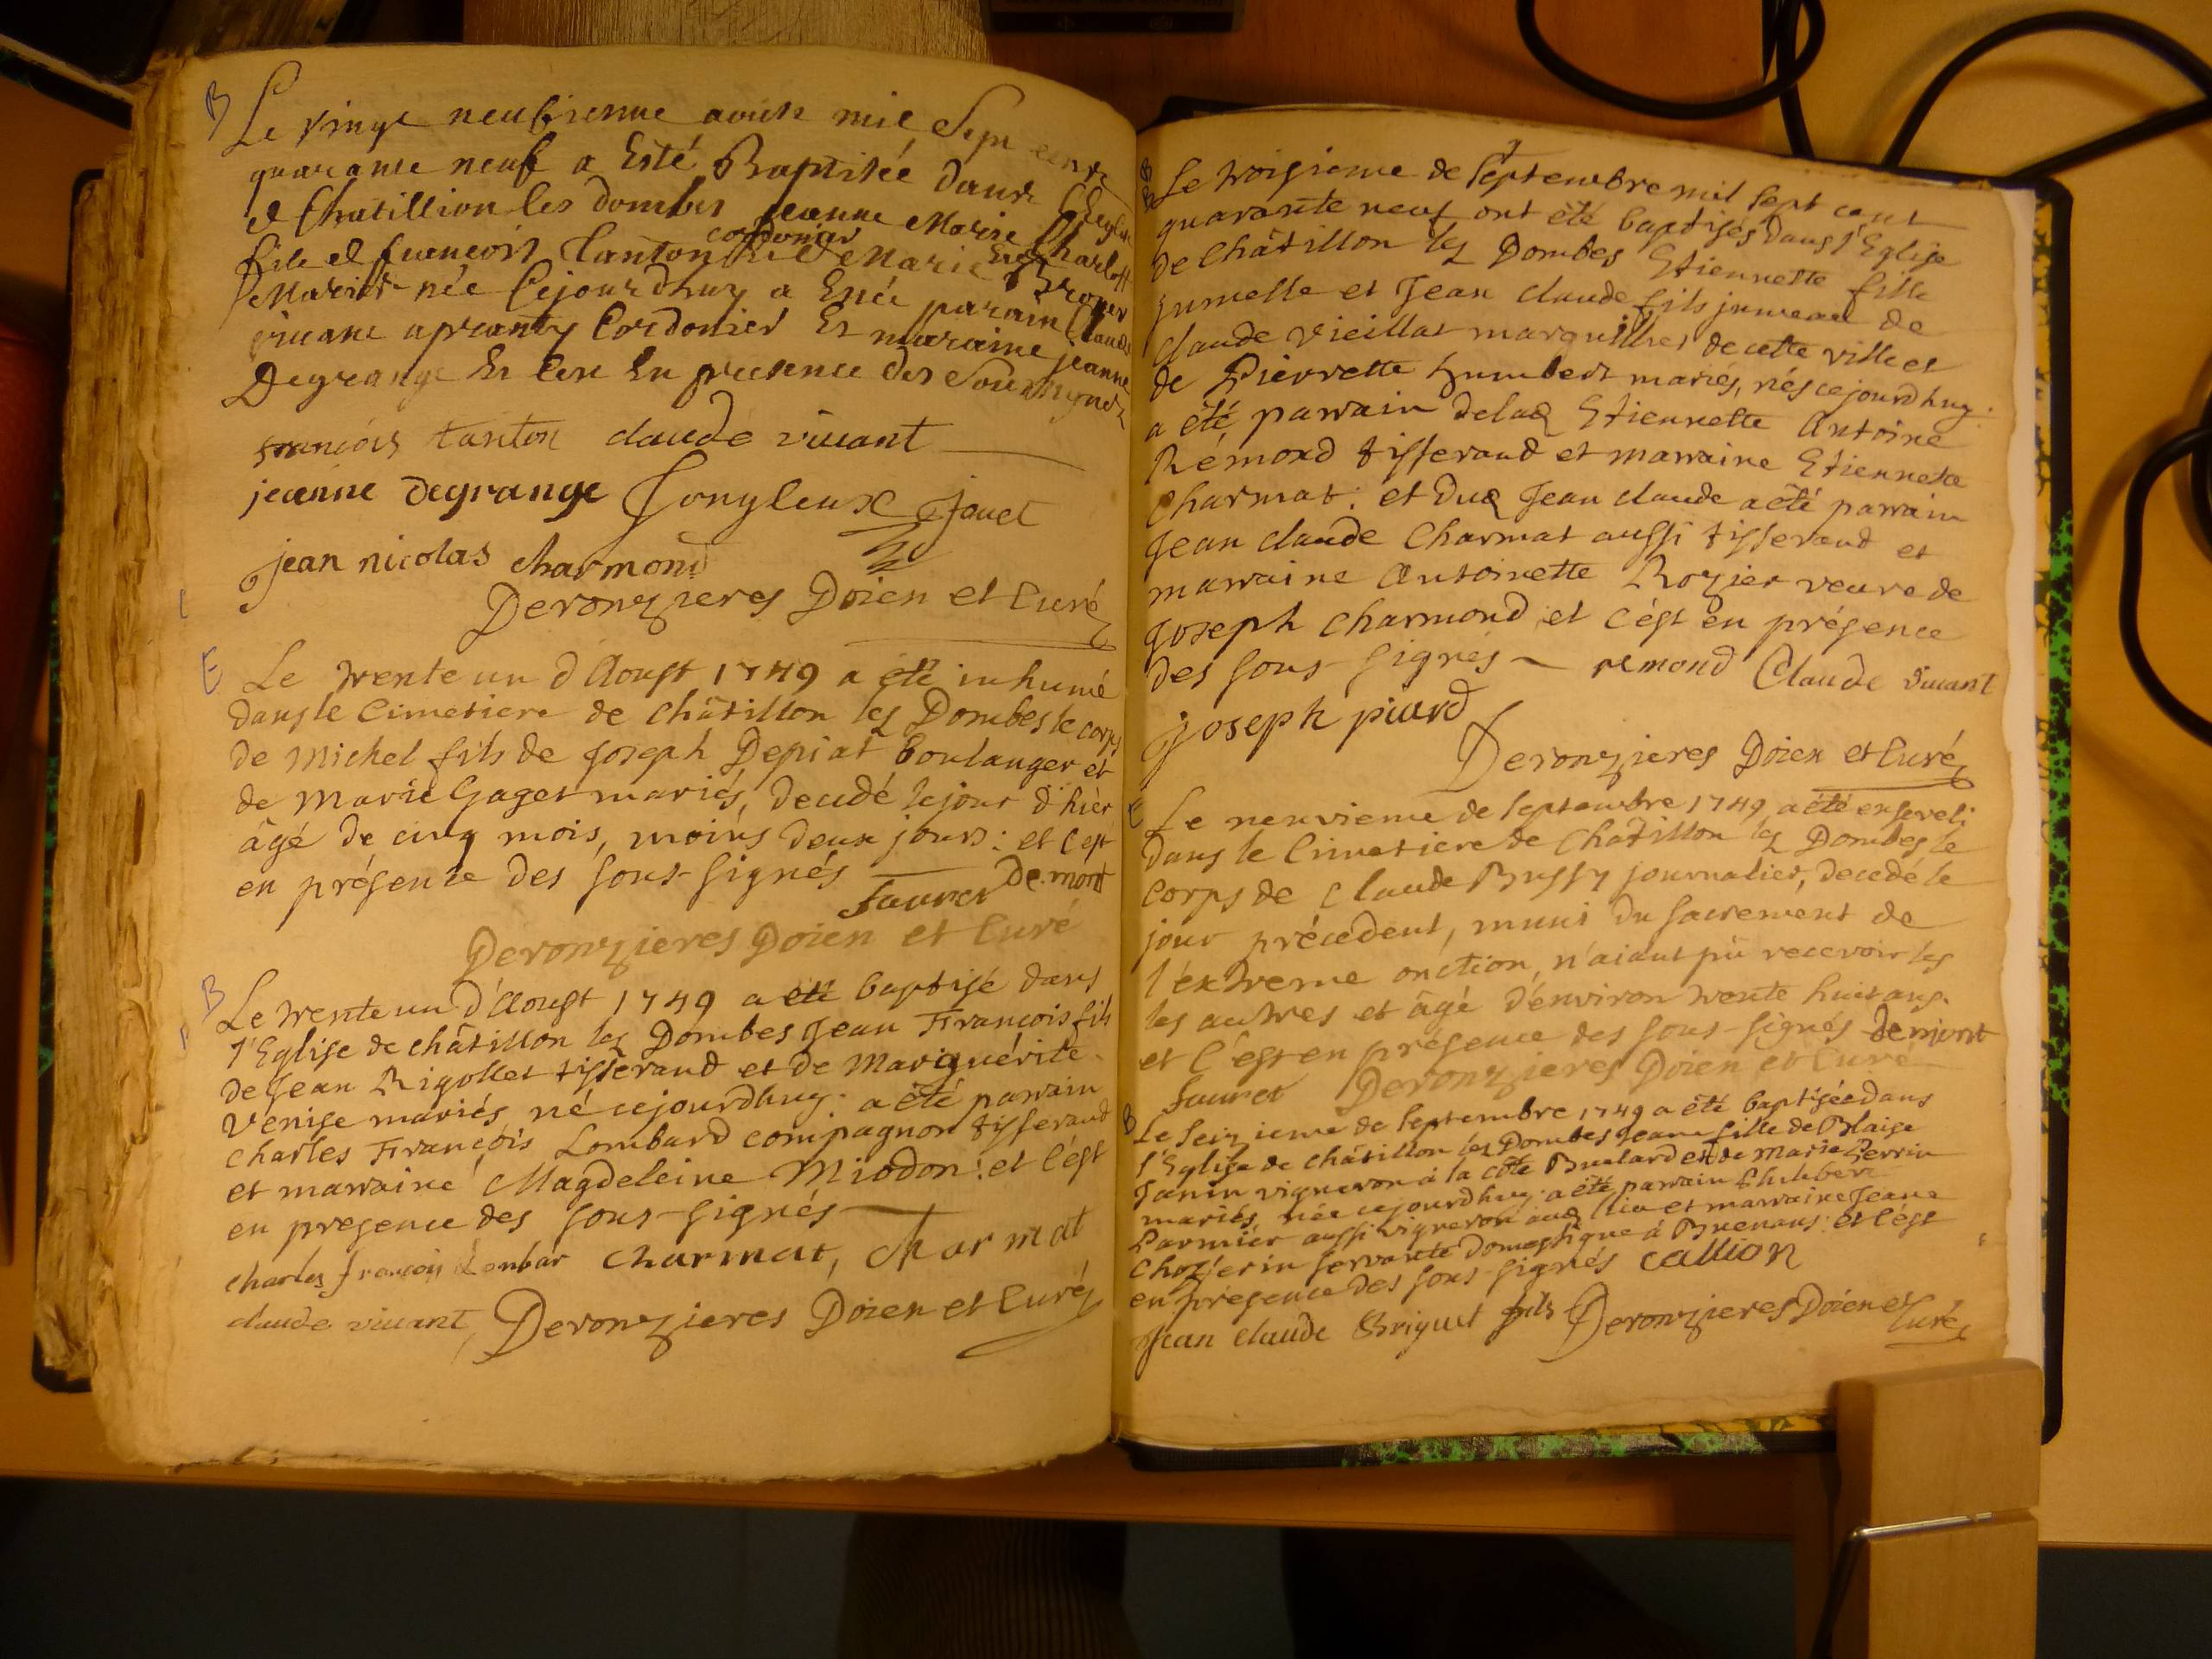 B Le vingt neufvieme aoust mil Sept cent
quarante neuf a Esté Baptisée dans l'Eglise
de Chatillion les dombes jeanne Marie Charlotte
fille de francois Tanton cordonier Et de Marie
Mariés née Cejourdhuy a Esté parain Claude
vivant apranty Cordonier Et maraine jeanne
Degrange Et Cest En presence des Soussignés
francois tanton claude vivant
jeanne Degrange Jongleux Jouet
jean nicolas charmond
Deronzieres Doien et Curé
E Le trente un d'Aoust 1749 a été inhumé
dans le Cimetiere de Châtillon les Dombes le corps
de Michel fils de Joseph Depiat boulanger et
de Marie Gaget mariés, decedé le jour d'hièr
âgé de cinq mois, moins deux jours: et c'est
en présence des sous-signés
faurer De.mont
Deronzieres Doien et Curé
B Le trente un d'Aoust 1749 a été baptisé dans
l'Eglise de châtillon les Dombes Jean François fils
de Jean Rigollet tisserand et de Marguérite
Venise mariés, né cejourdhuy: a été parrain
Charles François Lombard compagnon tisserand
et marraine Magdeleine Miodon: et c'est
en presence des sous-signés
charles françois Lonbar charmat, charmat
claude vivant, Deronzieres Doien et Curé
B B Le troisieme de Septembre mil sept cent
quarante neuf ont été baptisés dans l'Eglise
de Châtillon les Dombes Etiennette fille
jumelle et Jean claude fils jumeau de
claude Vieillat marguillier de cette ville et
de Pierrette humbert mariés, nés cejourdhuy.
a été parrain delad Etiennette Antoine
Rémond tisserand et marraine Etiennete
Charmat: et dud Jean claude a été parrain
Jean claude Charmat aussi tisserand et
marraine Antoinette Rozier veuve de
Joseph Charmond et c'est en présence
des sous-signés remond Claude vivant
joseph piard
Deronzieres Doien et Curé
E Le neuvieme de septembre 1749 a été enseveli
dans le Cimetiere de Châtillon les Dombes le
corps de Claude Bussy journalier, decedé le
jour précedent, muni du sacrement de
l'extreme onction, n'aiant pu recevoir les
les autres et âgé d'environ trente huit ans.
et c'est en présence des sous-signés de mont
faurer Deronzieres Doien et Curé
B Le seizieme de septembre 1749 a été baptisée dans
l'Eglise de châtillon les Dombes Jeane fille de Blaise
Janin vigneron à la côte Buelard et de Marie Perrin
mariés, née cejourdhuy: a été parrain
Parmier aussi vigneron aud lieu et marraine Jeane
servante domestique à Buenans: et c'est
en présence des sous-signés callion
Jean claude Briquet fils Deronzieres Doien et
Curé